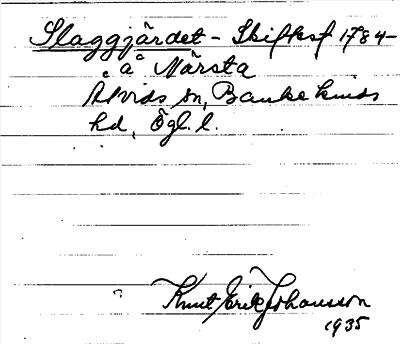 Slaggjärdet - Skifteskf 1784-
å Närsta
Alvids sn, Bankekinds
hd, Ögl. l.
Knut Erik Johansson
1935